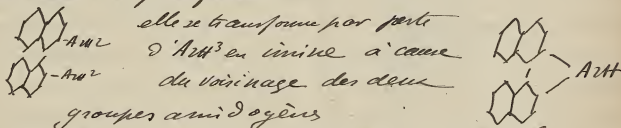 -AzH² elle se transforme par perte
d'AzH³ en imine à cause AzH
-AzH² du voisinage des deux
groupes amidogènes